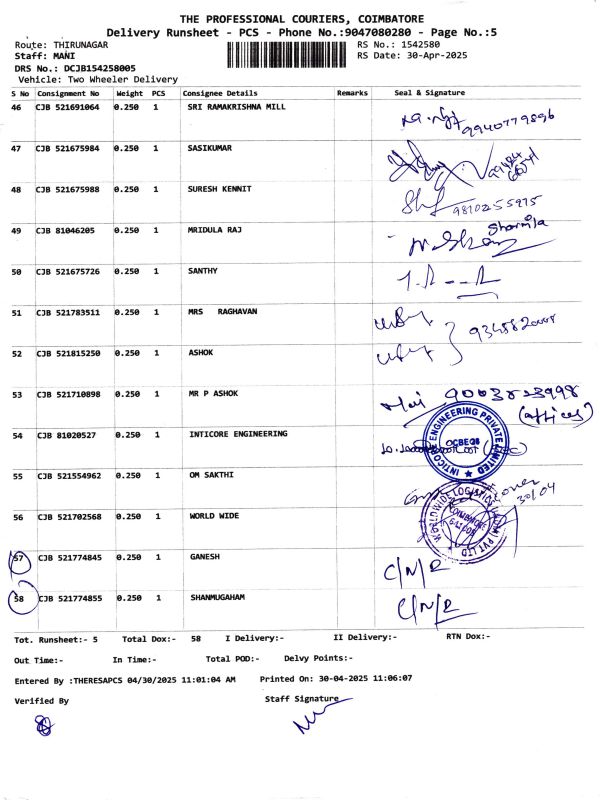 THE PROFESSIONAL COURIERS, COIMBATORE
Delivery Runsheet - PCS - Phone No.:9047080280 - Page No.:5
Route: THIRUNAGAR RS No.: 1542580
Staff: MANI RS Date: 30-Apr-2025
DRS No.: DCJB154258005
Vehicle: Two Wheeler Delivery
S No Consignment No Weight PCS Consignee Details Remarks Seal & Signature
46 CJB 521691064 0.250 1 SRI RAMAKRISHNA MILL 9940779896
47 CJB 521675984 0.250 1 SASIKUMAR
48 CJB 521675988 0.250 1 SURESH KENNIT
49 CJB 81046205 0.250 1 MRIDULA RAJ Sharmila
50 CJB 521675726 0.250 1 SANTHY
51 CJB 521783511 0.250 1 MRS RAGHAVAN
52 CJB 521815250 0.250 1 ASHOK
53 CJB 521710898 0.250 1 MR P ASHOK
54 CJB 81020527 0.250 1 INTICORE ENGINEERING INTICORE ENGINEERING PRIVATE LIMITED
55 CJB 521554962 0.250 1 OM SAKTHI 30/04
56 CJB 521702568 0.250 1 WORLD WIDE WORLDWIDE LOGISTICS PVT LTD
57 CJB 521774845 0.250 1 GANESH C/N/R
58 CJB 521774855 0.250 1 SHANMUGHAM C/N/R
Tot. Runsheet:- 5 Total Dox:- 58 I Delivery:- II Delivery:- RTN Dox:-
Out Time:- In Time:- Total POD:- Delvy Points:-
Entered By :THERESAPCS 04/30/2025 11:01:04 AM Printed On: 30-04-2025 11:06:07
Verified By Staff Signature